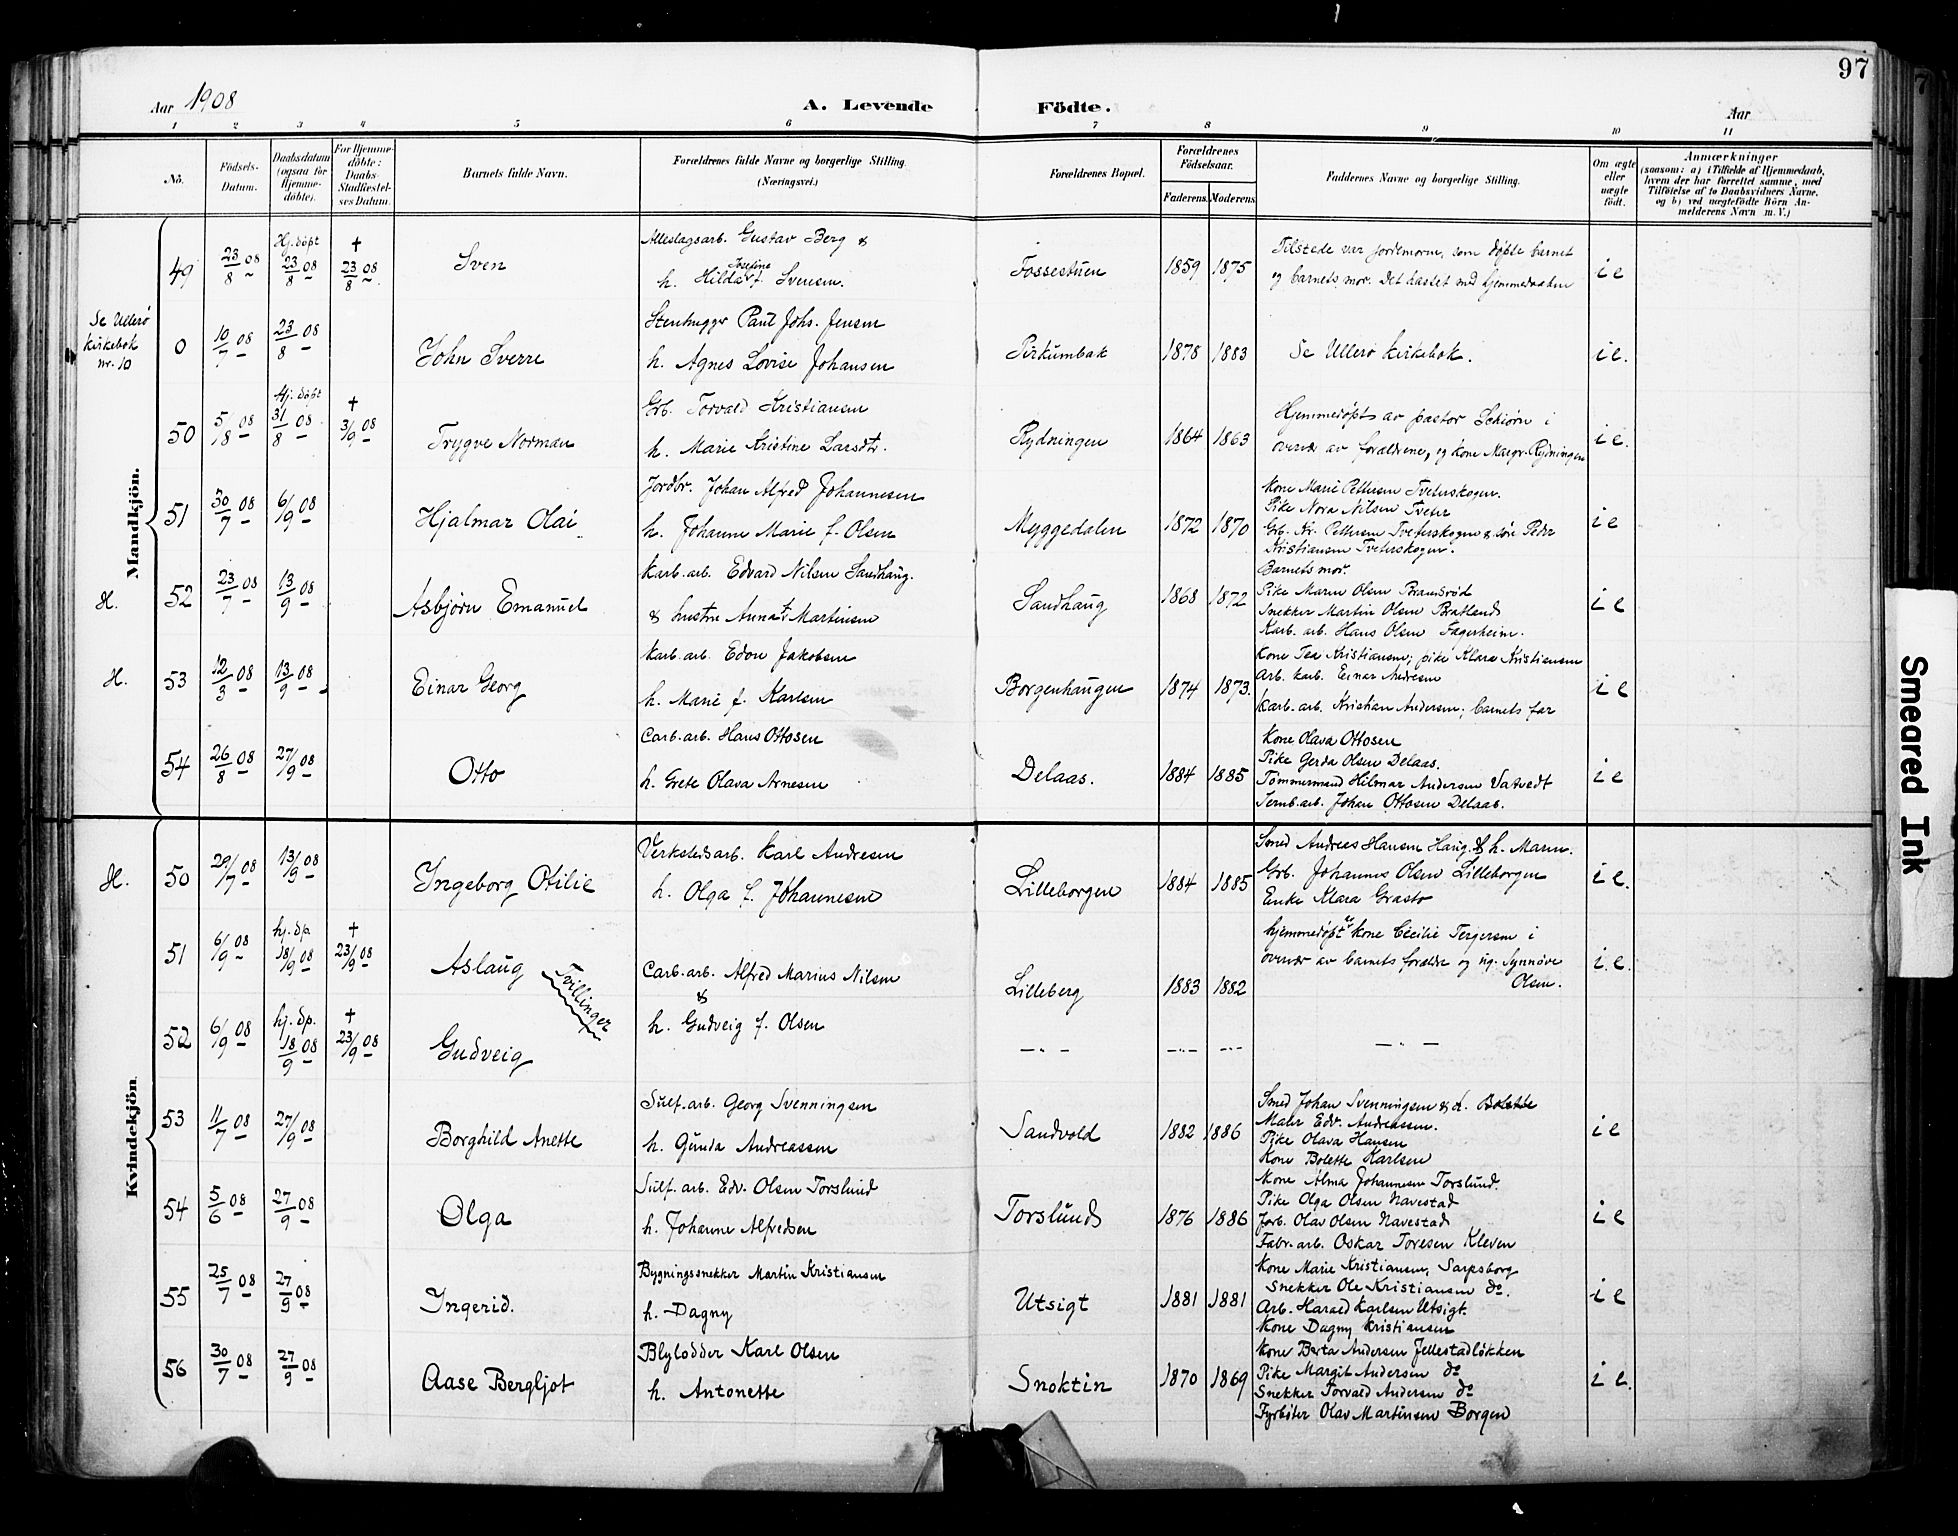 97
Aar 1908
A. Levende Födte.
Aar
1 2 3 4 5 6 7 8 9 10 11
No.
Födsels-Datum.
Daabsdatum (ogsaa for Hjemme-döbte).
For Hjemme-döbte: Daabs-Stadfæstel-ses Datum.
Barnets fulde Navn.
Forældrenes fulde Navne og borgerlige Stilling. (Næringsvei.)
Forældrenes Bopæl.
Forældrenes Födselsaar.
Faderens. Moderens.
Faddernes Navne og borgerlige Stilling.
Om ægte eller uægte födt.
Anmærkninger
(saasom: a) i Tilfælde af Hjemmedaab,
hvem der har forrettet samme, med
Tilföielse af to Daabsvidners Navne,
og b) ved uægtefödte Börn An-
melderens Navn m. V.)
Mandkjön.
49 23/8 08 Hj. døpt 23/8 08 † 23/8 08 Sven
Alleslagsarb. Gustav Berg &
h. Hilda Josefine f. Svensen.
Fossestuen 1859 1875
Tilstede var jordemoren, som døpte barnet
og barnets mor. Det hastet med hjemmedaaben
i e
Se Ullerø kirkebok nr. 10
0 10/7 08 23/8 08 John Sverre
Stenhugger Paul Johs. Jensen
h. Agnes Lovise Johansen
Pirkumbak 1878 1883 Se Ullerø kirkebok. i e.
50 5/8 08 Hj. døpt 31/8 08 † 3/9 08 Trygve Norman
Grb. Torvald Kristiansen
h. Marie Kristine Larsdtr.
Rydningen 1864 1863
Hjemmedøpt av pastor Schiørn i
overvær av forældrene, og kone Margr. Rydningen
i e.
51 30/7 08 6/9 08 Hjalmar Olai
Jordbr. Johan Alfred Johannesen
h. Johanne Marie f. Olsen
Myggedalen 1872 1870
Kone Marie Pettersen Tveterskogen.
Pike Nora Nilsen Tveter
Grb. Kr. Pettersen Tveterskogen & søn Peder
Kristiansen Tveterskogen.
i e
H. 52 23/7 08 13/9 08 Asbjørn Emanuel
Karb. arb. Edvard Nilsen Sandhaug.
& hustru Anna f. Martinsen
Sandhaug 1868 1872
Barnets mor.
Pike Maren Olsen Bramsrød
Snekker Martin Olsen Bratland
Karb. arb. Hans Olsen Fagerheim.
i e
H. 53 12/3 08 13/9 08 Einar Georg
Karb. arb. Edon Jakobsen
h. Marie f. Karlsen
Borgenhaugen 1874 1873.
Kone Tea Kristiansen; pike Klara Kristiansen
Arb. karb. Einar Andresen
Karb. arb. Kristian Andersen; barnets far
i e
54 26/8 08 27/9 08 Otto
Carb. arb. Hans Ottosen
h. Grete Olava Arnesen
Delaas. 1884 1885
Kone Olava Ottosen
Pike Gerda Olsen Delaas.
Tømmermand Hilmar Andersen Vatvedt
Jernb. arb. Johan Ottosen Delaas.
i e
Kvindekjön.
H. 50 29/7 08 13/9 08 Ingeborg Otilie
Verkstedsarb. Karl Andresen
h. Olga f. Johannesen
Lilleborgen 1884 1885
Smed Andreas Hansen Haug. & h. Maren.
Grb. Johannes Olsen Lilleborgen
Enke Klara Grasto
i e.
51 6/9 08 hj. dp. 18/9 08 † 23/9 08 Aslaug
Tvillinger
Carb. arb. Alfred Marius Nilsen
&
h. Gudveig f. Olsen
Lilleberg 1883 1882
hjemmedøpt av kone Cecilie Tergersen i
overvær av barnets forældre og ug. Synnøve
Olsen.
i. e.
52 6/9 08 hj. dp. 18/9 08 † 23/9 08 Gudveig
— " — — " — — " — — " —
53 11/7 08 27/9 08 Borghild Anette
Sulf. arb. Georg Svenningsen
h. Gunda Andreassen
Sandvold 1882 1886
Smed Johan Svenningsen & h. Bolette
Maler Edv. Andreassen.
Pike Olava Hansen
Kone Bolette Karlsen
i e
54 5/6 08 27/9 08 Olga
Sulf. arb. Edv. Olsen Torslund
h. Johanne Alfredsen
Torslund 1876 1886
Kone Alma Johannesen Torslund.
Pike Olga Olsen Navestad
Jorb. Olav Olsen Navestad
Fabr. arb. Oskar Toresen Kleven
i e
55 25/7 08 27/9 08 Ingerid.
Bygningssnekker Martin Kristiansen
h. Dagny
Utsigt 1881 1881
Kone Marie Kristiansen, Sarpsborg
Snekker Ole Kristiansen do.
Arb. Harald Karlsen Utsigt.
Kone Dagny Kristiansen
i e
56 30/7 08 27/9 08 Aase Bergljot
Blylodder Karl Olsen
h. Antonette
Snoktin 1870 1869
Kone Berta Andersen Jellestadløkken
Pike Margit Andersen do
Snekker Torvald Andersen do
Fyrbøter Olav Martinsen Borgen
i e.
Smeared Ink